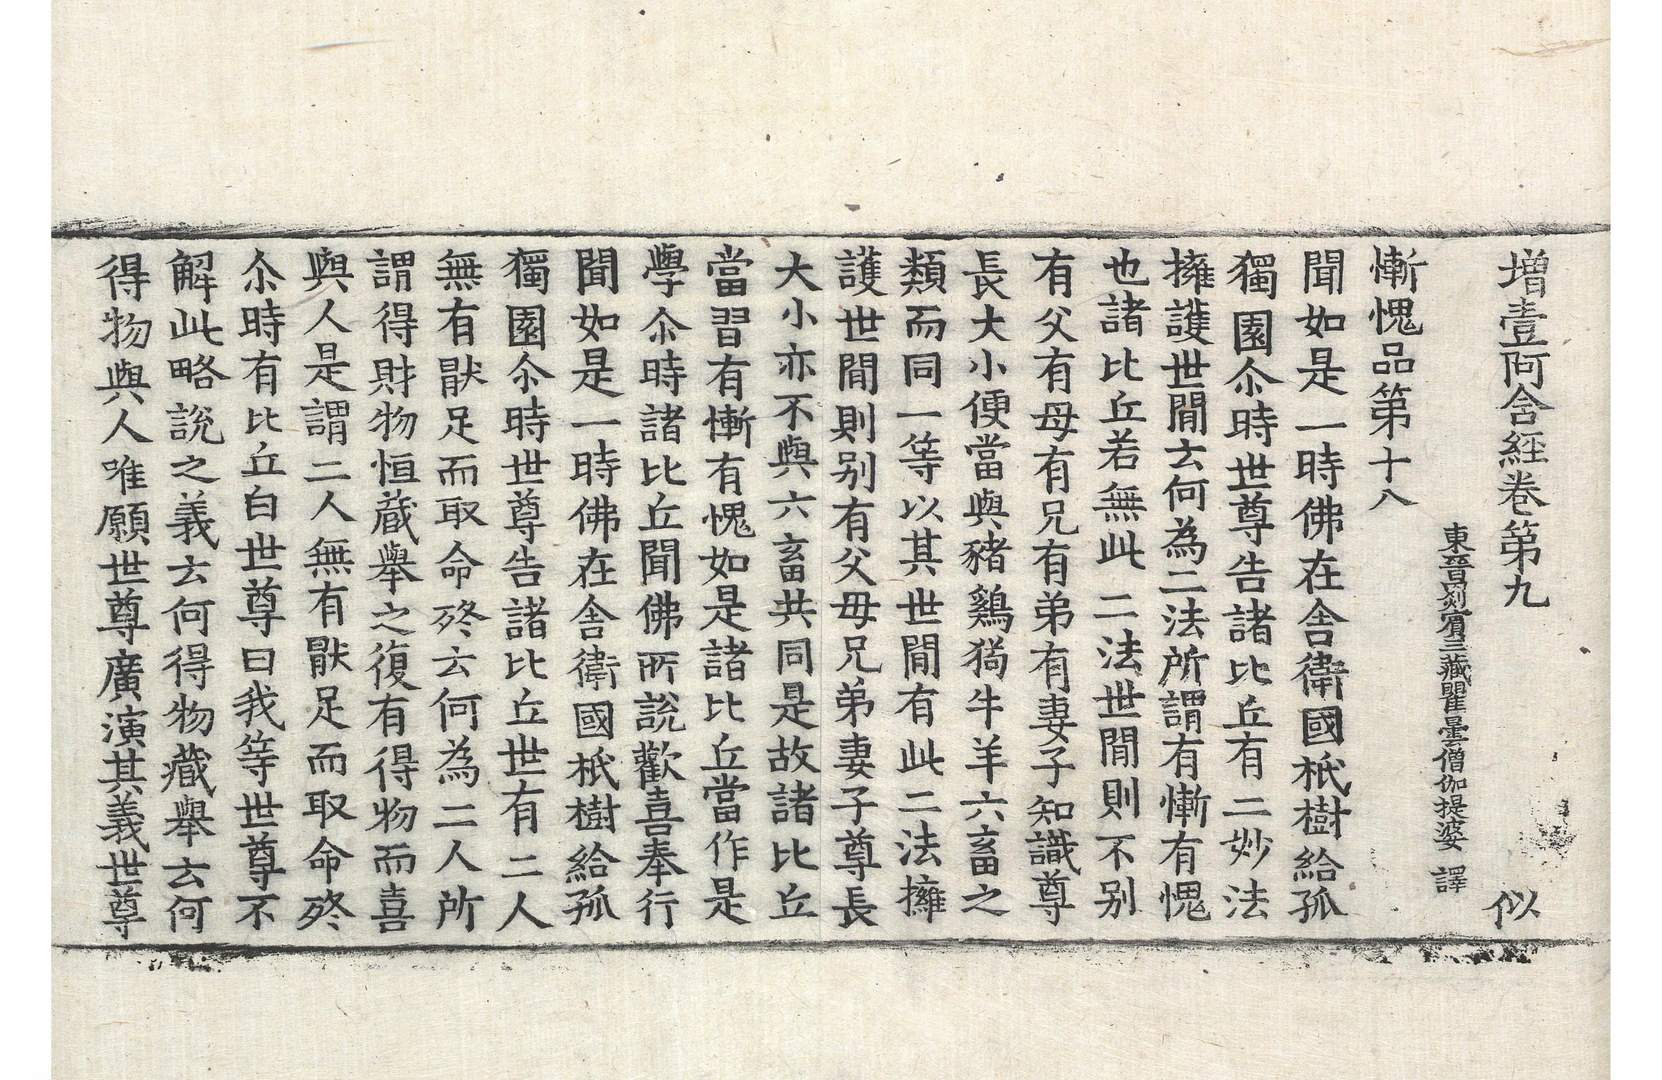 增壹阿含經卷第九 似
東晉罽賓三藏瞿曇僧伽提婆 譯
慚愧品第十八
聞如是一時佛在舍衛國祇樹給孤
獨園尒時世尊告諸比丘有二妙法
擁護世間云何為二法所謂有慚有愧
也諸比丘若無此二法世間則不別
有父有母有兄有弟有妻子知識尊
長大小便當與豬鷄猗牛羊六畜之
類而同一等以其世間有此二法擁
護世間則別有父母兄弟妻子尊長
大小亦不與六畜共同是故諸比丘
當習有慚有愧如是諸比丘當作是
學尒時諸比丘聞佛所說歡喜奉行
聞如是一時佛在舍衛國祇樹給孤
獨園尒時世尊告諸比丘世有二人
無有猒足而取命終云何為二人所
謂得財物恒藏舉之復有得物而喜
與人是謂二人無有猒足而取命終
尒時有比丘白世尊曰我等世尊不
解此略說之義云何得物藏舉云何
得物與人唯願世尊廣演其義世尊